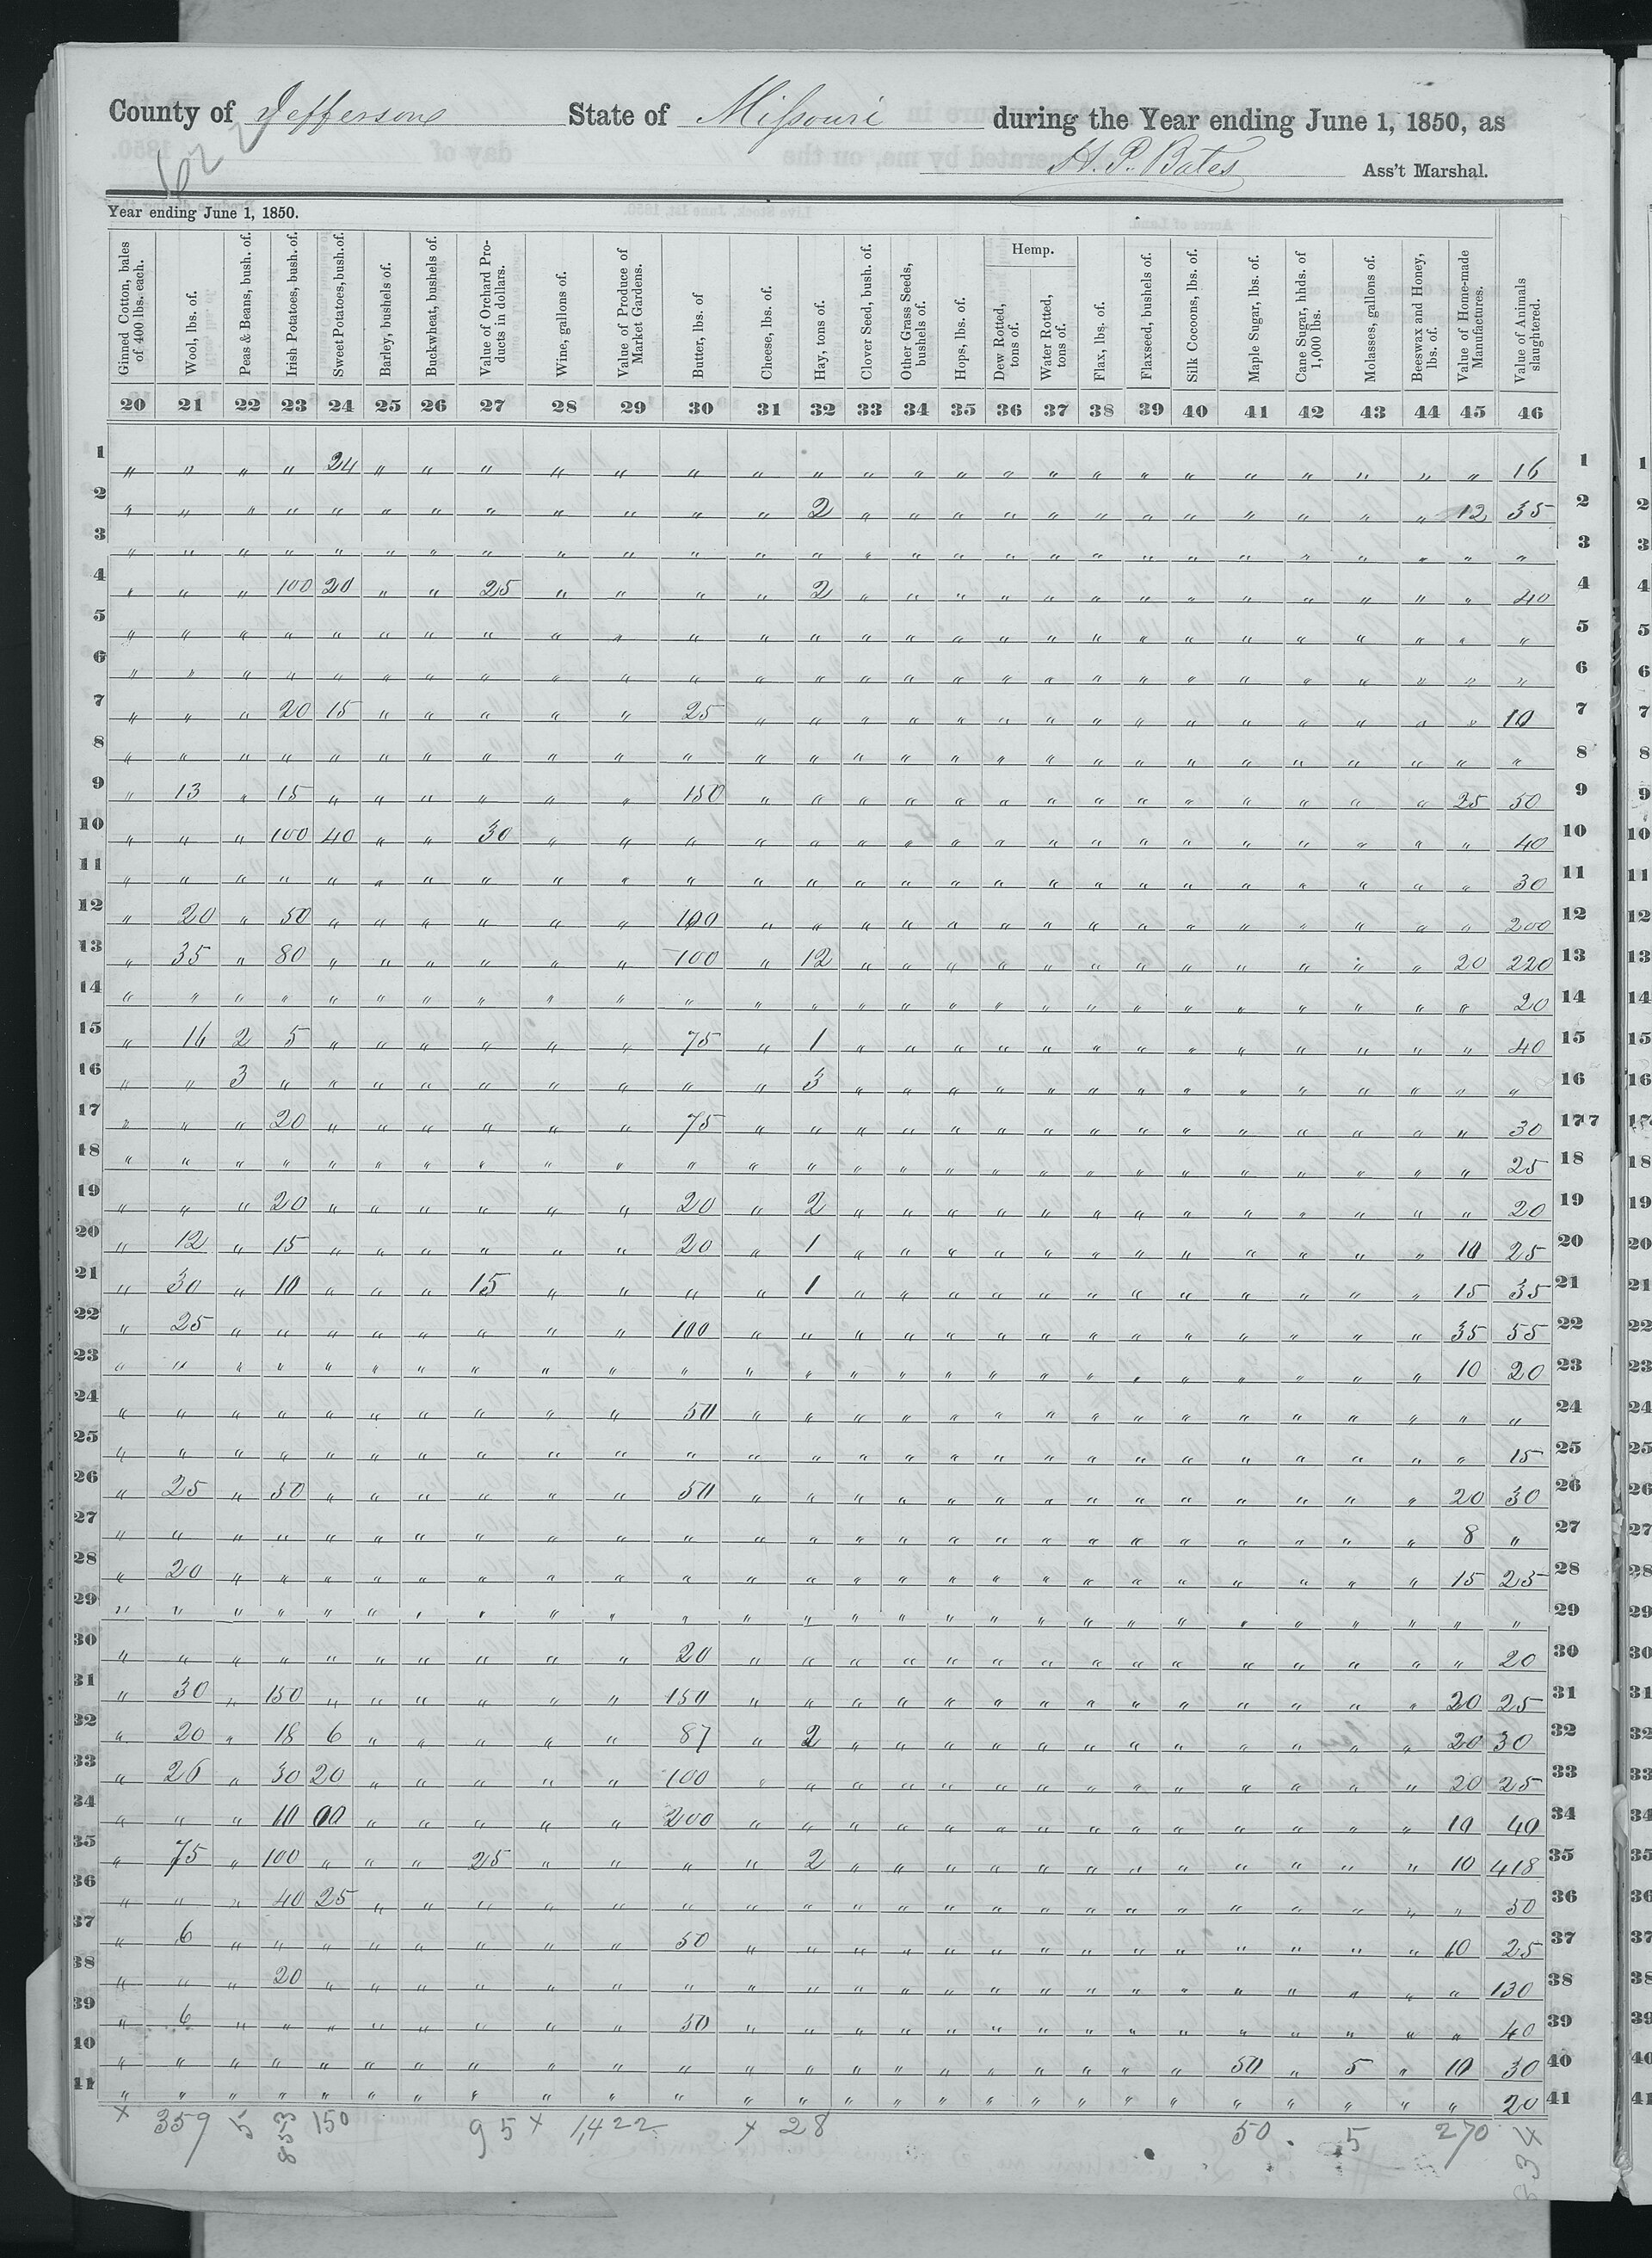 County of Jefferson State of Missouri during the Year ending June 1, 1850, as
H. P. Bates Ass't Marshal.
Year ending June 1, 1850.
Ginned Cotton, bales of 400 lbs. each. Wool, lbs. of. Peas & Beans, bush. of. Irish Potatoes, bush. of. Sweet Potatoes, bush. of. Barley, bushels of. Buckwheat, bushels of. Value of Orchard Products in dollars. Wine, gallons of. Value of Produce of Market Gardens. Butter, lbs. of Cheese, lbs. of. Hay, tons of. Clover Seed, bush. of. Other Grass Seeds, bushels of. Hops, lbs. of. Hemp. Dew Rotted, tons of. Water Rotted, tons of. Flax, lbs. of. Flaxseed, bushels of. Silk Cocoons, lbs. of. Maple Sugar, lbs. of. Cane Sugar, hhds. of 1,000 lbs. Molasses, gallons of. Beeswax and Honey, lbs. of. Value of Home-made Manufactures. Value of Animals slaughtered.
20 21 22 23 24 25 26 27 28 29 30 31 32 33 34 35 36 37 38 39 40 41 42 43 44 45 46
1 " " " " 24 " " " " " " " " " " " " " " " " " " " " " 16 1
2 " " " " " " " " " " " " 2 " " " " " " " " " " " " 12 35 2
3 " " " " " " " " " " " " " " " " " " " " " " " " " " " 3
4 " " " 100 20 " " 25 " " " " 2 " " " " " " " " " " " " " 40 4
5 " " " " " " " " " " " " " " " " " " " " " " " " " " " 5
6 " " " " " " " " " " " " " " " " " " " " " " " " " " " 6
7 " " " 20 15 " " " " " 25 " " " " " " " " " " " " " " " 10 7
8 " " " " " " " " " " " " " " " " " " " " " " " " " " " 8
9 " 13 " 15 " " " " " " 150 " " " " " " " " " " " " " " 25 50 9
10 " " " 100 40 " " 30 " " " " " " " " " " " " " " " " " " 40 10
11 " " " " " " " " " " " " " " " " " " " " " " " " " " 30 11
12 " 20 " 50 " " " " " " 100 " " " " " " " " " " " " " " " 200 12
13 " 35 " 80 " " " " " " 100 " 12 " " " " " " " " " " " " 20 220 13
14 " " " " " " " " " " " " " " " " " " " " " " " " " " 20 14
15 " 16 2 5 " " " " " " 75 " 1 " " " " " " " " " " " " " 40 15
16 " " 3 " " " " " " " " " 3 " " " " " " " " " " " " " " 16
17 " " " 20 " " " " " " 75 " " " " " " " " " " " " " " " 30 17
18 " " " " " " " " " " " " " " " " " " " " " " " " " " 25 18
19 " " " 20 " " " " " " 20 " 2 " " " " " " " " " " " " " 20 19
20 " 12 " 15 " " " " " " 20 " 1 " " " " " " " " " " " " 10 25 20
21 " 30 " 10 " " " 15 " " " " 1 " " " " " " " " " " " " 15 35 21
22 " 25 " " " " " " " " 100 " " " " " " " " " " " " " " 35 55 22
23 " " " " " " " " " " " " " " " " " " " " " " " " " 10 20 23
24 " " " " " " " " " " 50 " " " " " " " " " " " " " " " " 24
25 " " " " " " " " " " " " " " " " " " " " " " " " " " 15 25
26 " 25 " 50 " " " " " " 50 " " " " " " " " " " " " " " 20 30 26
27 " " " " " " " " " " " " " " " " " " " " " " " " " 8 " 27
28 " 20 " " " " " " " " " " " " " " " " " " " " " " " 15 25 28
29 " " " " " " " " " " " " " " " " " " " " " " " " " " " 29
30 " " " " " " " " " " 20 " " " " " " " " " " " " " " " 20 30
31 " 30 " 150 " " " " " " 150 " " " " " " " " " " " " " " 20 25 31
32 " 20 " 18 6 " " " " " 87 " 2 " " " " " " " " " " " " 20 30 32
33 " 26 " 30 20 " " " " " 100 " " " " " " " " " " " " " " 20 25 33
34 " " " 10 00 " " " " " 200 " " " " " " " " " " " " " " 10 40 34
35 " 75 " 100 " " " 25 " " " " 2 " " " " " " " " " " " " 10 418 35
36 " " " 40 25 " " " " " " " " " " " " " " " " " " " " " 50 36
37 " 6 " " " " " " " " 50 " " " " " " " " " " " " " " 10 25 37
38 " " " 20 " " " " " " " " " " " " " " " " " " " " " " 130 38
39 " 6 " " " " " " " " 50 " " " " " " " " " " " " " " " 40 39
40 " " " " " " " " " " " " " " " " " " " " " 50 " 5 " 10 30 40
41 " " " " " " " " " " " " " " " " " " " " " " " " " " 20 41
x 359 5 853 150 95 x 1,422 x 28 50 . 5 270